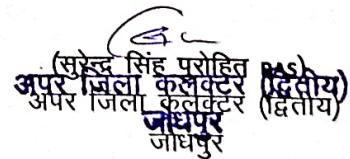 (सुरेन्द्र सिंह पुरोहित RAS)
अपर जिला कलेक्टर (द्वितीय)
अपर जिला कलेक्टर (द्वितीय)
जोधपुर
जोधपुर